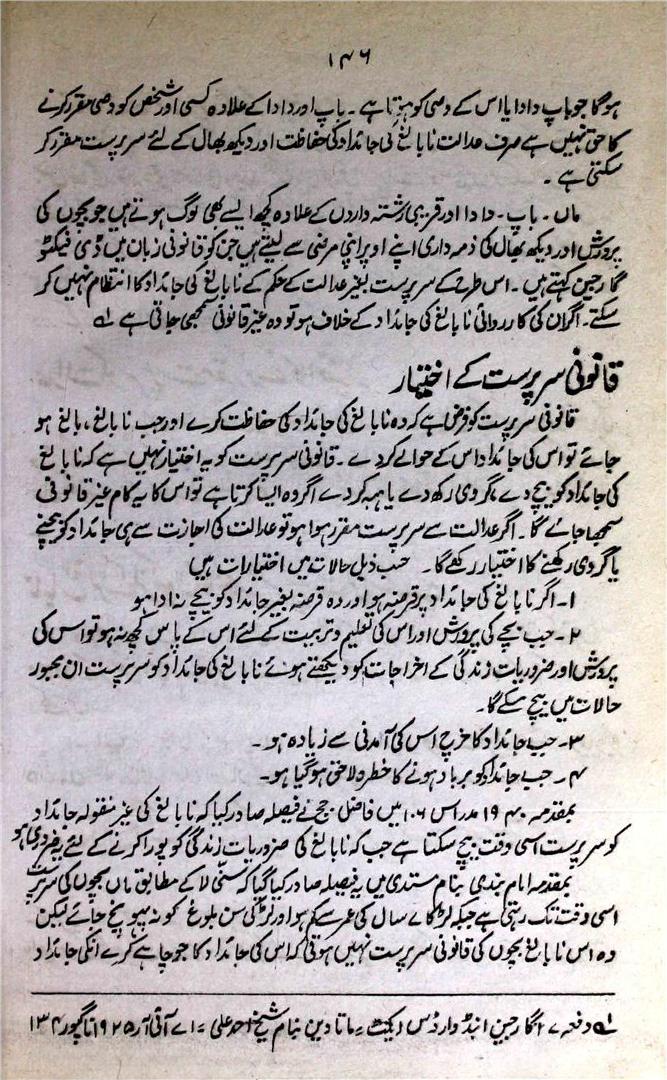 ۱۴۶
ہوگا جو باپ دادا یا اس کے وصی کو ہوتا ہے ۔ باپ اور دادا کے علاوہ کسی اور شخص کو وصی مقرر کرنے
کا حق نہیں ہے صرف عدالت نابالغ کی جائداد کی حفاظت اور دیکھ بھال کے لئے سرپرست مقرر کر
سکتی ہے ۔
ماں ۔ باپ ۔ دادا اور قریبی رشتہ داروں کے علاوہ کچھ ایسے بھی لوگ ہوتے ہیں جو بچوں کی
پرورش اور دیکھ بھال کی ذمہ داری اپنے اوپر اپنی مرضی سے لیتے ہیں جن کو قانونی زبان میں ڈی فیکٹو
گارجین کہتے ہیں ۔ اس طرح کے سرپرست بغیر عدالت کے حکم کے نابالغ کی جائداد کا انتظام نہیں کر
سکتے ۔ اگر ان کی کارروائی نابالغ کی جائداد کے خلاف ہو تو وہ غیر قانونی سمجھی جاتی ہے لہ
قانونی سرپرست کے اختیار
قانونی سرپرست کو فرض ہے کہ وہ نابالغ کی جائداد کی حفاظت کرے اور جب نابالغ ، بالغ ہو
جائے تو اس کی جائداد اس کے حوالے کردے ۔ قانونی سرپرست کو یہ اختیار نہیں ہے کہ نابالغ
کی جائداد کو بیچ دے ، گروی رکھ دے یا ہبہ کردے اگر وہ ایسا کرتا ہے تو اس کا یہ کام غیر قانونی
سمجھا جائے گا ۔ اگر عدالت سے سرپرست مقرر ہوا ہو تو عدالت کی اجازت سے ہی جائداد کو بیچنے
یا گروی رکھنے کا اختیار رکھے گا ۔ حسب ذیل حالات میں اختیارات ہیں
۱۔ اگر نابالغ کی جائداد پر قرضہ ہو اور وہ قرضہ بغیر جائداد کو بیچے نہ ادا ہو
۲۔ جب بچے کی پرورش اور اس کی تعلیم و تربیت کے لئے اس کے پاس کچھ نہ ہو تو اس کی
پرورش اور ضروریات زندگی کے اخراجات کو دیکھتے ہوئے نابالغ کی جائداد کو سرپرست ان مجبور
حالات میں بیچ سکے گا ۔
۳۔ جب جائداد کا خرچ اس کی آمدنی سے زیادہ ہو ۔
۴۔ جب جائداد کو برباد ہونے کا خطرہ لاحق ہو گیا ہو ۔
بمقدمہ ۱۹۴۰ مدراس ۱۰۶ میں فاضل جج نے فیصلہ صادر کیا کہ نابالغ کی غیر منقولہ جائداد
کو سرپرست اسی وقت بیچ سکتا ہے جب کہ نابالغ کی ضروریات زندگی کو پورا کرنے کے لئے ضروری ہو
بمقدمہ امام بندی بنام مستدی میں یہ فیصلہ صادر کیا گیا کہ سنی لا کے مطابق ماں بچوں کی سرپرست
اسی وقت تک رہتی ہے جبکہ لڑکا ۷ سال کی عمر سے کم ہو اور لڑکی سن بلوغ کو نہ پہونچ جائے لیکن
وہ اس نابالغ بچوں کی قانونی سرپرست نہیں ہوتی کہ اس کی جائداد کا جو چاہے کرے انکی جائداد
لہ دفعہ ۲۷ گارجین اینڈ وارڈس ایکٹ ۔ ماتا دین بنام شیخ احمد علی ۔ اے آئی آر ۱۹۲۵ ناگپور ۱۳۴